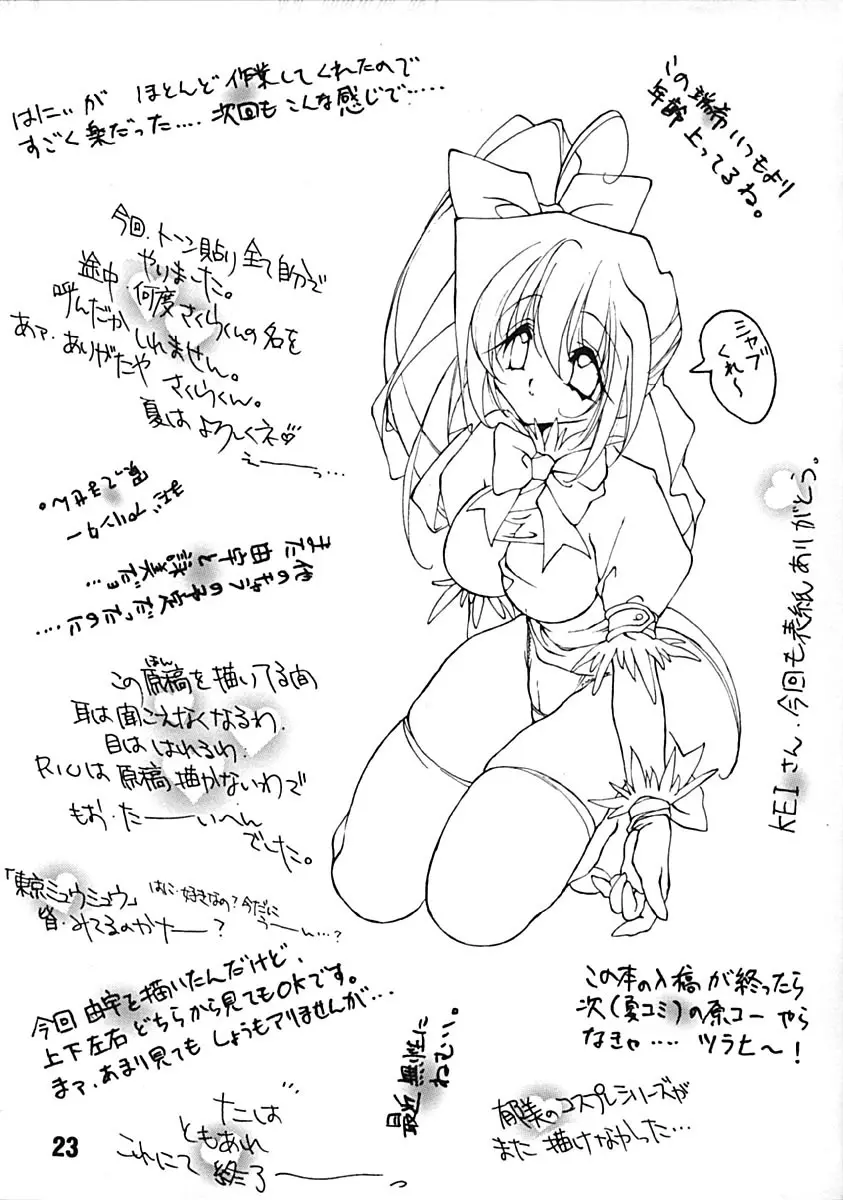 はにぃが ほとんど 作業してくれたので
すごく楽だった‥‥ 次回も こんな感じで‥‥‥
この 瑞希 いつもより
年齢 上ってるね。
今回、トーン貼り 全て自分で
やりました。
途中 何度 さくらくんの名を
呼んだか しれません。
あァ、ありがたや さくらくん。
夏は よろしくネ
えーーっ‥‥
シャブ
くれ〜
KEI さん、今回も表紙 ありがとう。
また 由宇と 詠美だョ‥‥
この原稿を描いてる間
ほん
耳は聞こえなくなるわ、
目は はれるわ、
RIUは 原稿 描かないわで
もお、たーーいへん
でした。
「東京ミュウミュウ」
皆、みてるのかなー?
はに、好きなの? 今だに
うーん‥‥?
今回 由宇を描いたんだけど、
上下左右 どちらから見てもOKです。
まァ、あまり見ても しょうもアリませんが‥‥
最近 無性に
ねむい。
この本の入稿が終ったら
次(夏コミ)の原コー やら
なきゃ‥‥ ツラヒ〜!
郁美のコスプレシリーズが
また 描けなかった‥‥
ともあれ
これにて 終了ーーっ
23